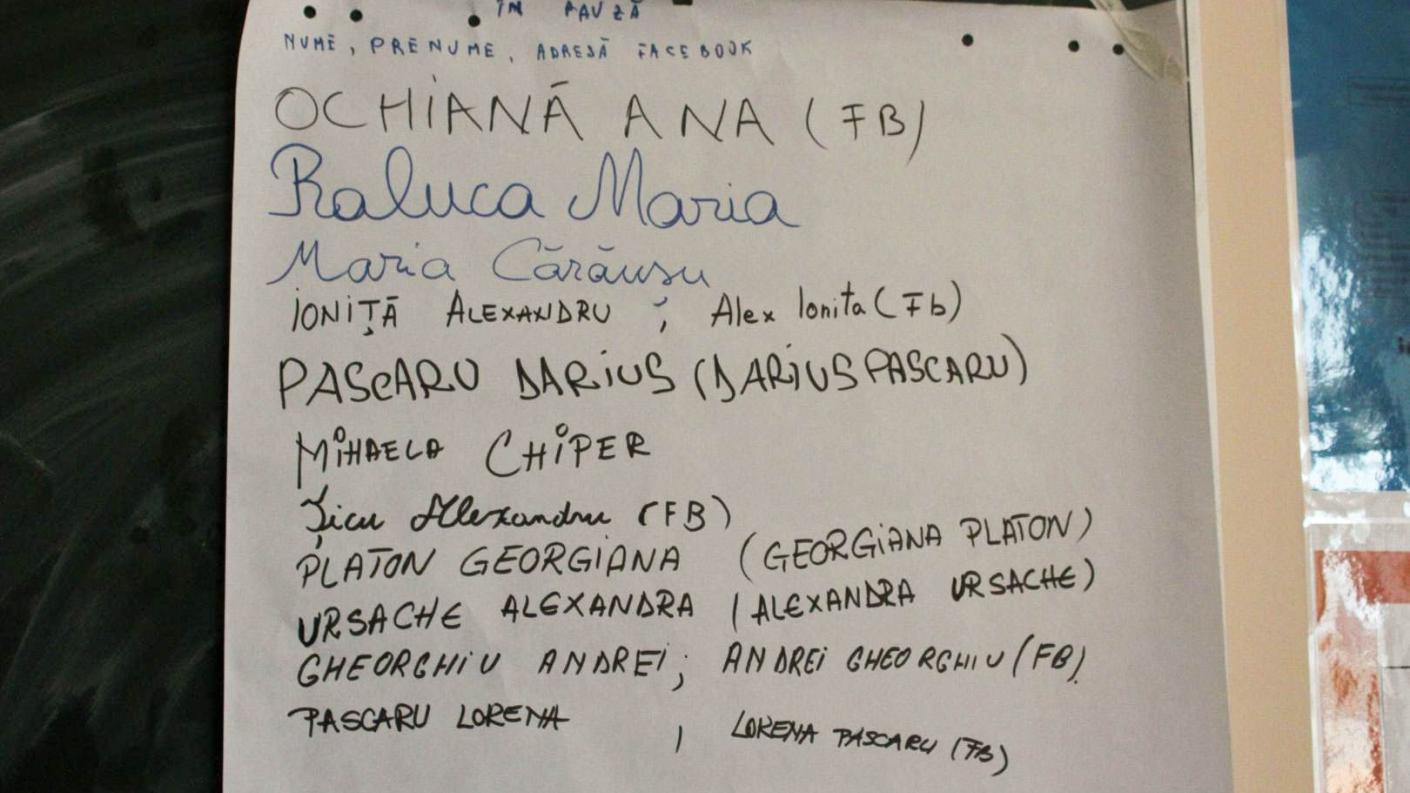 ÎN PAUZĂ
NUME, PRENUME, ADRESĂ FACEBOOK
OCHIANĂ ANA (FB)
Raluca Maria
Maria Cărăușu
IONIȚĂ ALEXANDRU ; Alex Ionita (Fb)
PASCARU DARIUS (DARIUS PASCARU)
MIHAELA CHIPER
Țicu Alexandru (FB)
PLATON GEORGIANA (GEORGIANA PLATON)
URSACHE ALEXANDRA (ALEXANDRA URSACHE)
GHEORGHIU ANDREI; ANDREI GHEORGHIU (FB)
PASCARU LORENA , LORENA PASCARU (FB)